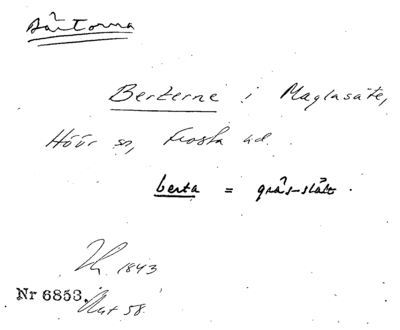 Berterne i Maglasäte,
Höör sn, Frosta hd.
berta = gräs-slått.
1843
Nr 6853.
58.